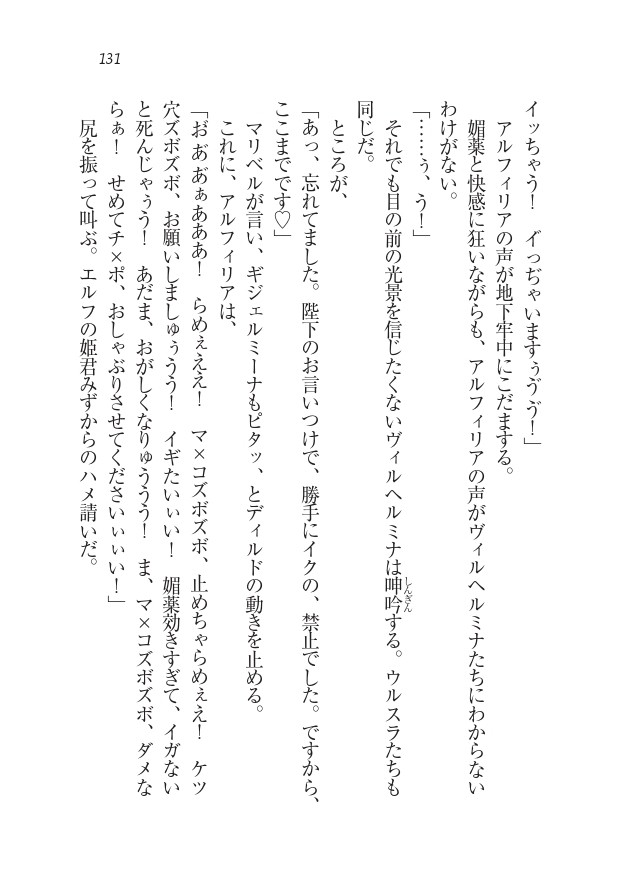 131
イッちゃう！　イっぢゃいますぅゔゔ！」
　アルフィリアの声が地下牢中にこだまする。
　媚薬と快感に狂いながらも、アルフィリアの声がヴィルヘルミナたちにわからない
わけがない。
「……ぅ、う！」
　それでも目の前の光景を信じたくないヴィルヘルミナは呻吟する。ウルスラたちも
しんぎん
同じだ。
　ところが、
「あっ、忘れてました。陛下のお言いつけで、勝手にイクの、禁止でした。ですから、
ここまでです♡」
　マリベルが言い、ギジェルミーナもピタッ、とディルドの動きを止める。
　これに、アルフィリアは、
「お゙ぁ゙あ゙ぁあああ！　らめぇええ！　マ×コズボズボ、止めちゃらめぇえ！　ケツ
穴ズボズボ、お願いしましゅぅうう！　イギたいぃい！　媚薬効きすぎて、イガない
と死んじゃぅう！　あだま、おがしくなりゅううう！　ま、マ×コズボズボ、ダメな
らぁ！　せめてチ×ポ、おしゃぶりさせてくださいぃぃい！」
　尻を振って叫ぶ。エルフの姫君みずからのハメ請いだ。